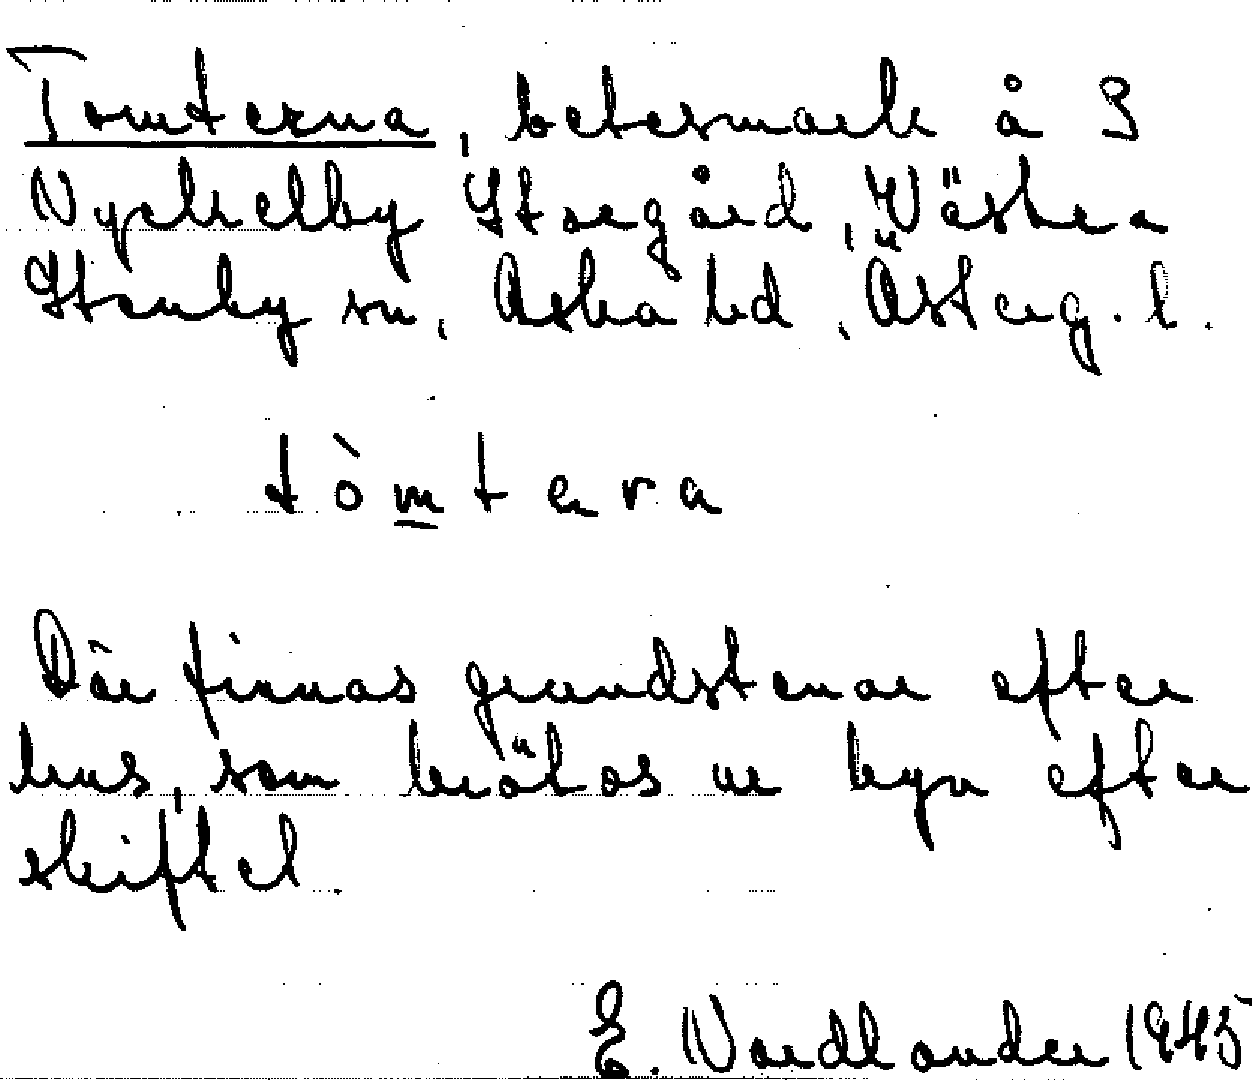 Tomterna, betesmark å 3
Nyckelby Storgård, Västra
Stenby sn, Aska hd, Österg.l.
tòmtera
Där finnas grundstenar efter
hus, som brötos ur byn efter
skiftet
E. Nordlander 1945